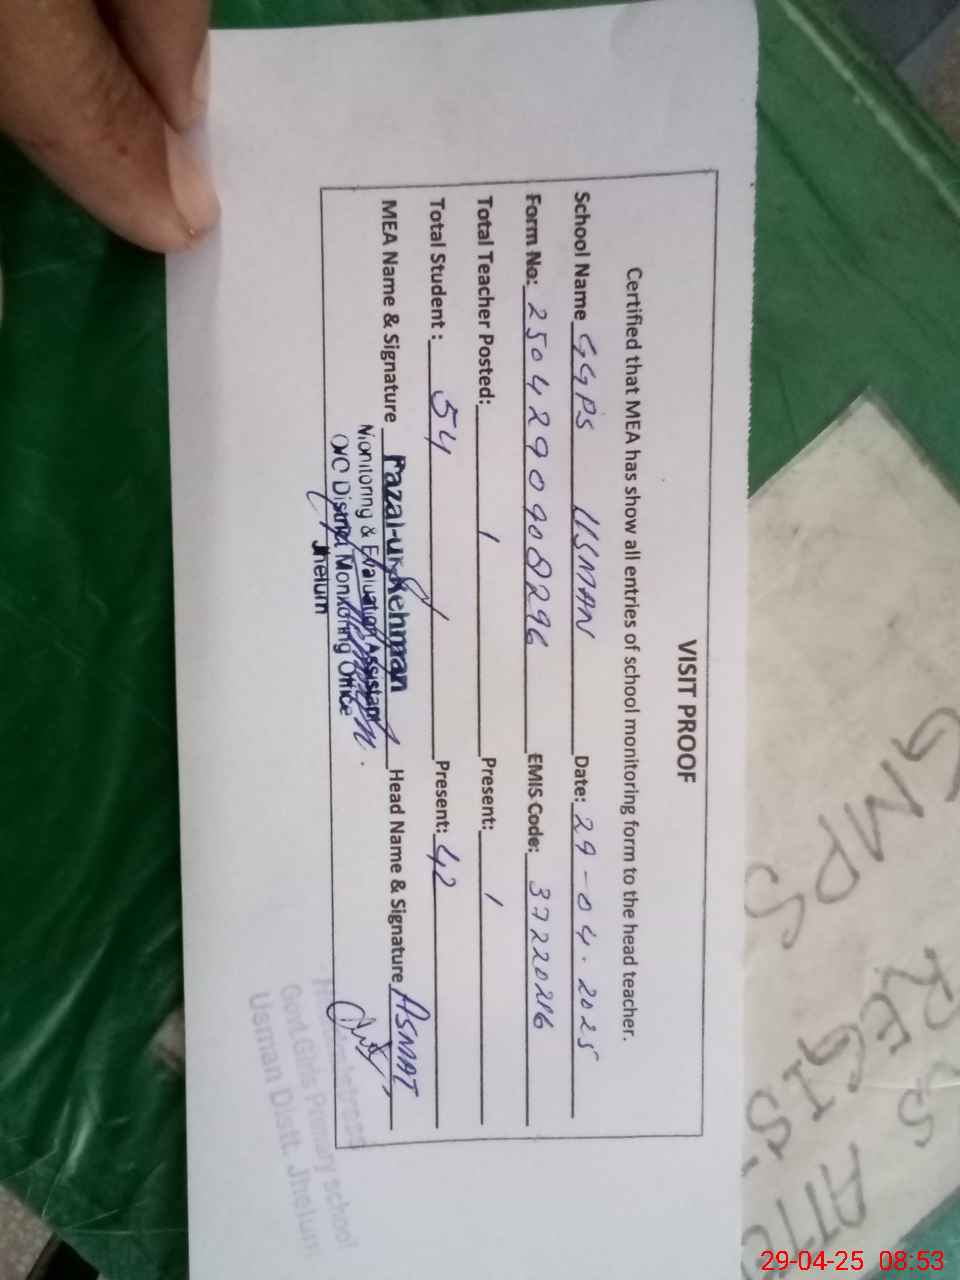 VISIT PROOF
Certified that MEA has show all entries of school monitoring form to the head teacher.
School Name GGPS USMAN Date: 29-04.2025
Form No: 2504290908296 EMIS Code: 37220216
Total Teacher Posted: 1 Present: 1
Total Student : 54 Present: 42
MEA Name & Signature Fazal-ur-Rehman Head Name & Signature ASMAT
Monitoring & Evaluation Assistant
O/C District Monitoring Office
Jhelum
Headmistress
Govt.Girls Primary school
Usman Distt. Jhelum
GMPS
REGIS
29-04-25 08:53